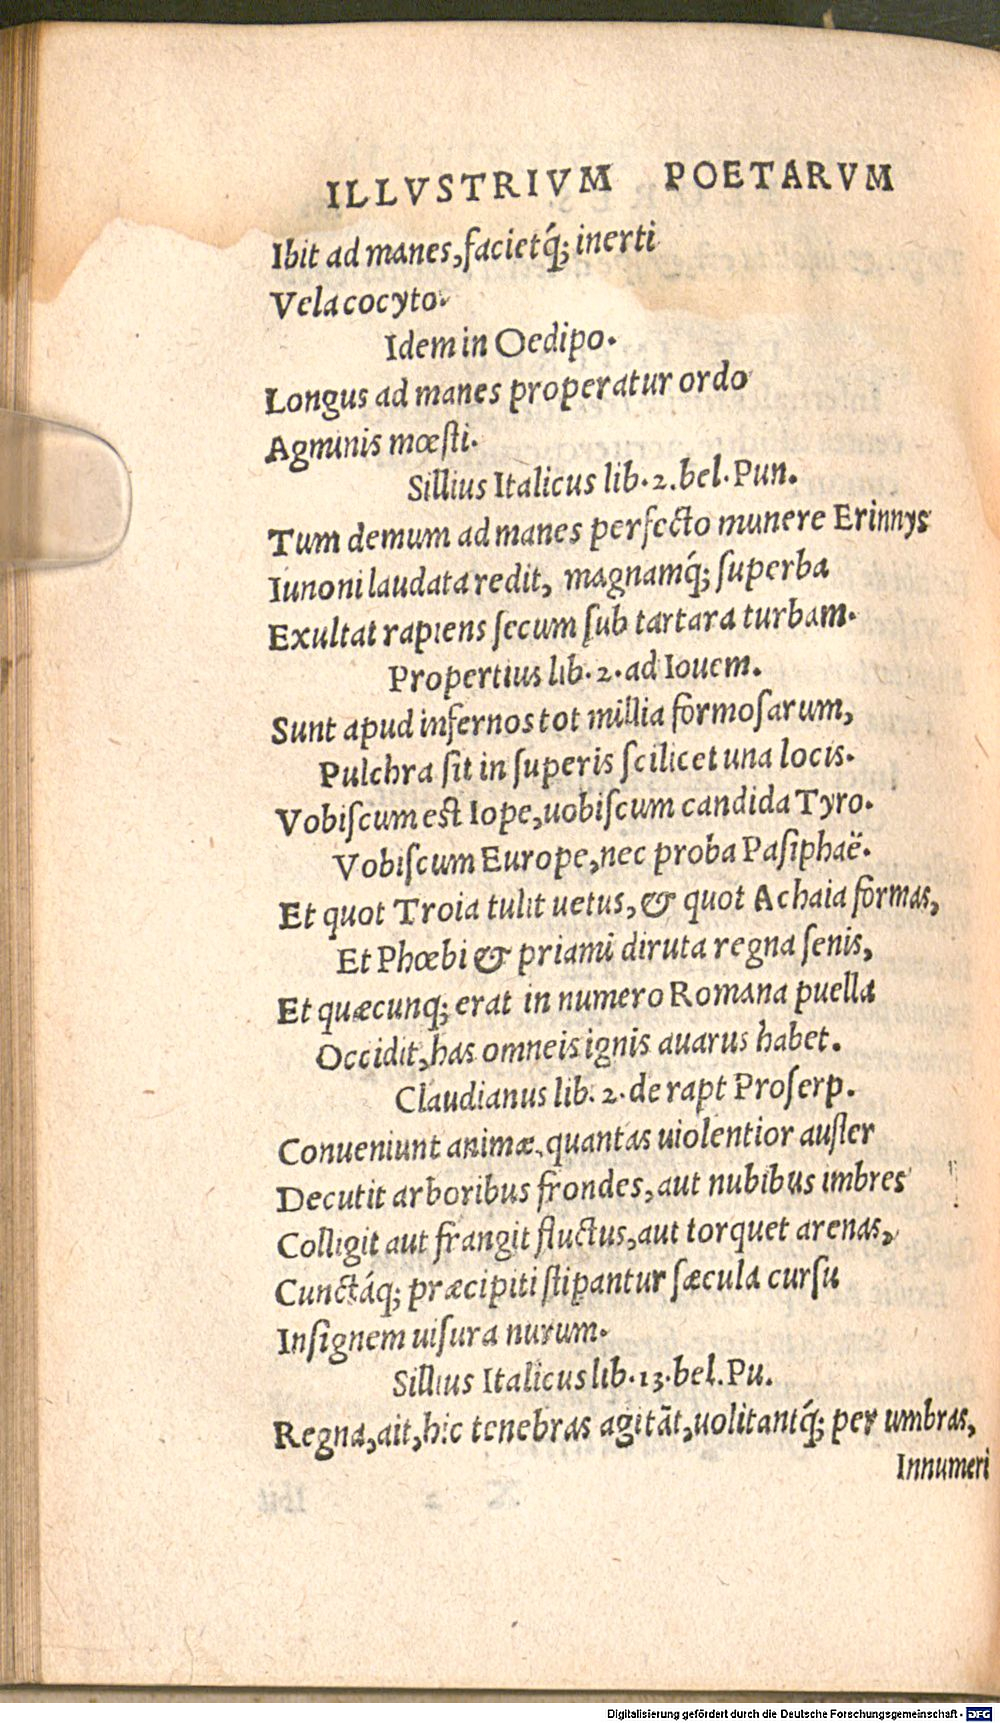 ILLVSTRIVM POETARVM
Ibit ad manes, facietq́; inerti
Vela cocyto.
Idem in Oedipo.
Longus ad manes properatur ordo
Agminis mœsti.
Sillius Italicus lib. 2. bel. Pun.
Tum demum ad manes perfecto munere Erinnys
Iunoni laudata redit, magnamq́; superba
Exultat rapiens secum sub tartara turbam.
Propertius lib. 2. ad Iouem.
Sunt apud infernos tot millia formosarum,
Pulchra sit in superis scilicet una locis.
Vobiscum est Iope, uobiscum candida Tyro.
Vobiscum Europe, nec proba Pasiphaë.
Et quot Troia tulit uetus, & quot Achaia formas,
Et Phœbi & priami diruta regna senis,
Et quæcunq; erat in numero Romana puella
Occidit, has omneis ignis auarus habet.
Claudianus lib. 2. de rapt Proserp.
Conueniunt animæ, quantas uiolentior auster
Decutit arboribus frondes, aut nubibus imbres
Colligit aut frangit fluctus, aut torquet arenas,
Cunctáq; præcipiti stipantur sæcula cursu
Insignem uisura nurum.
Sillius Italicus lib. 13. bel. Pu.
Regna, ait, hic tenebras agitāt, uolitantq́; per umbras,
Innumeri
Digitalisierung gefördert durch die Deutsche Forschungsgemeinschaft - DFG